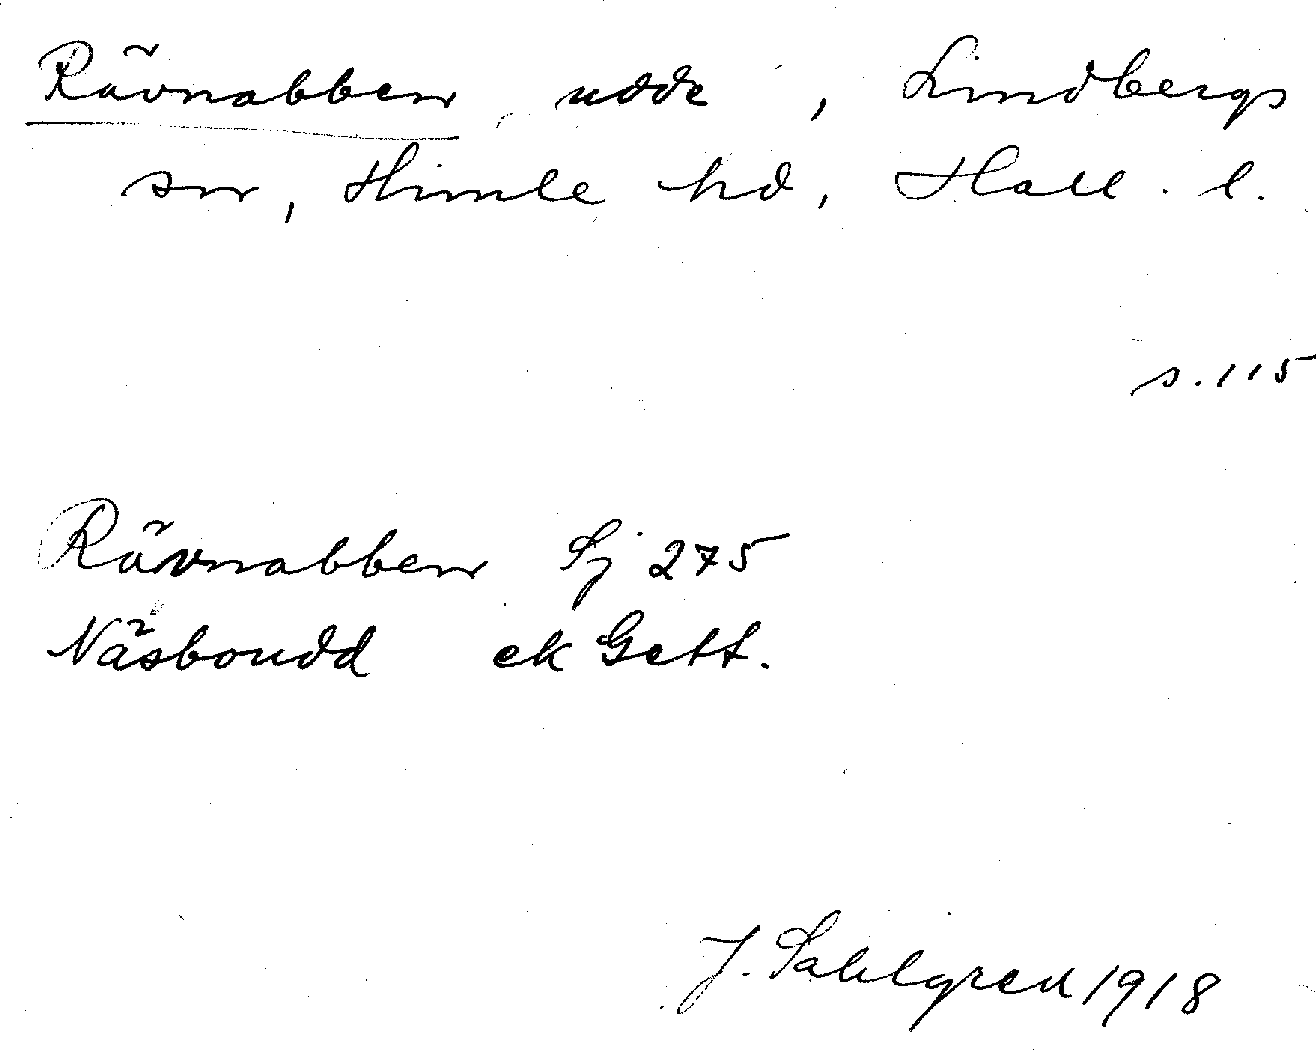 Rävnabben udde, Lindbergs
sn, Himle hd, Hall. l.
s. 115
Rävnabben Sj 275
Näsboudd ek Gett.
J. Sahlgren 1918